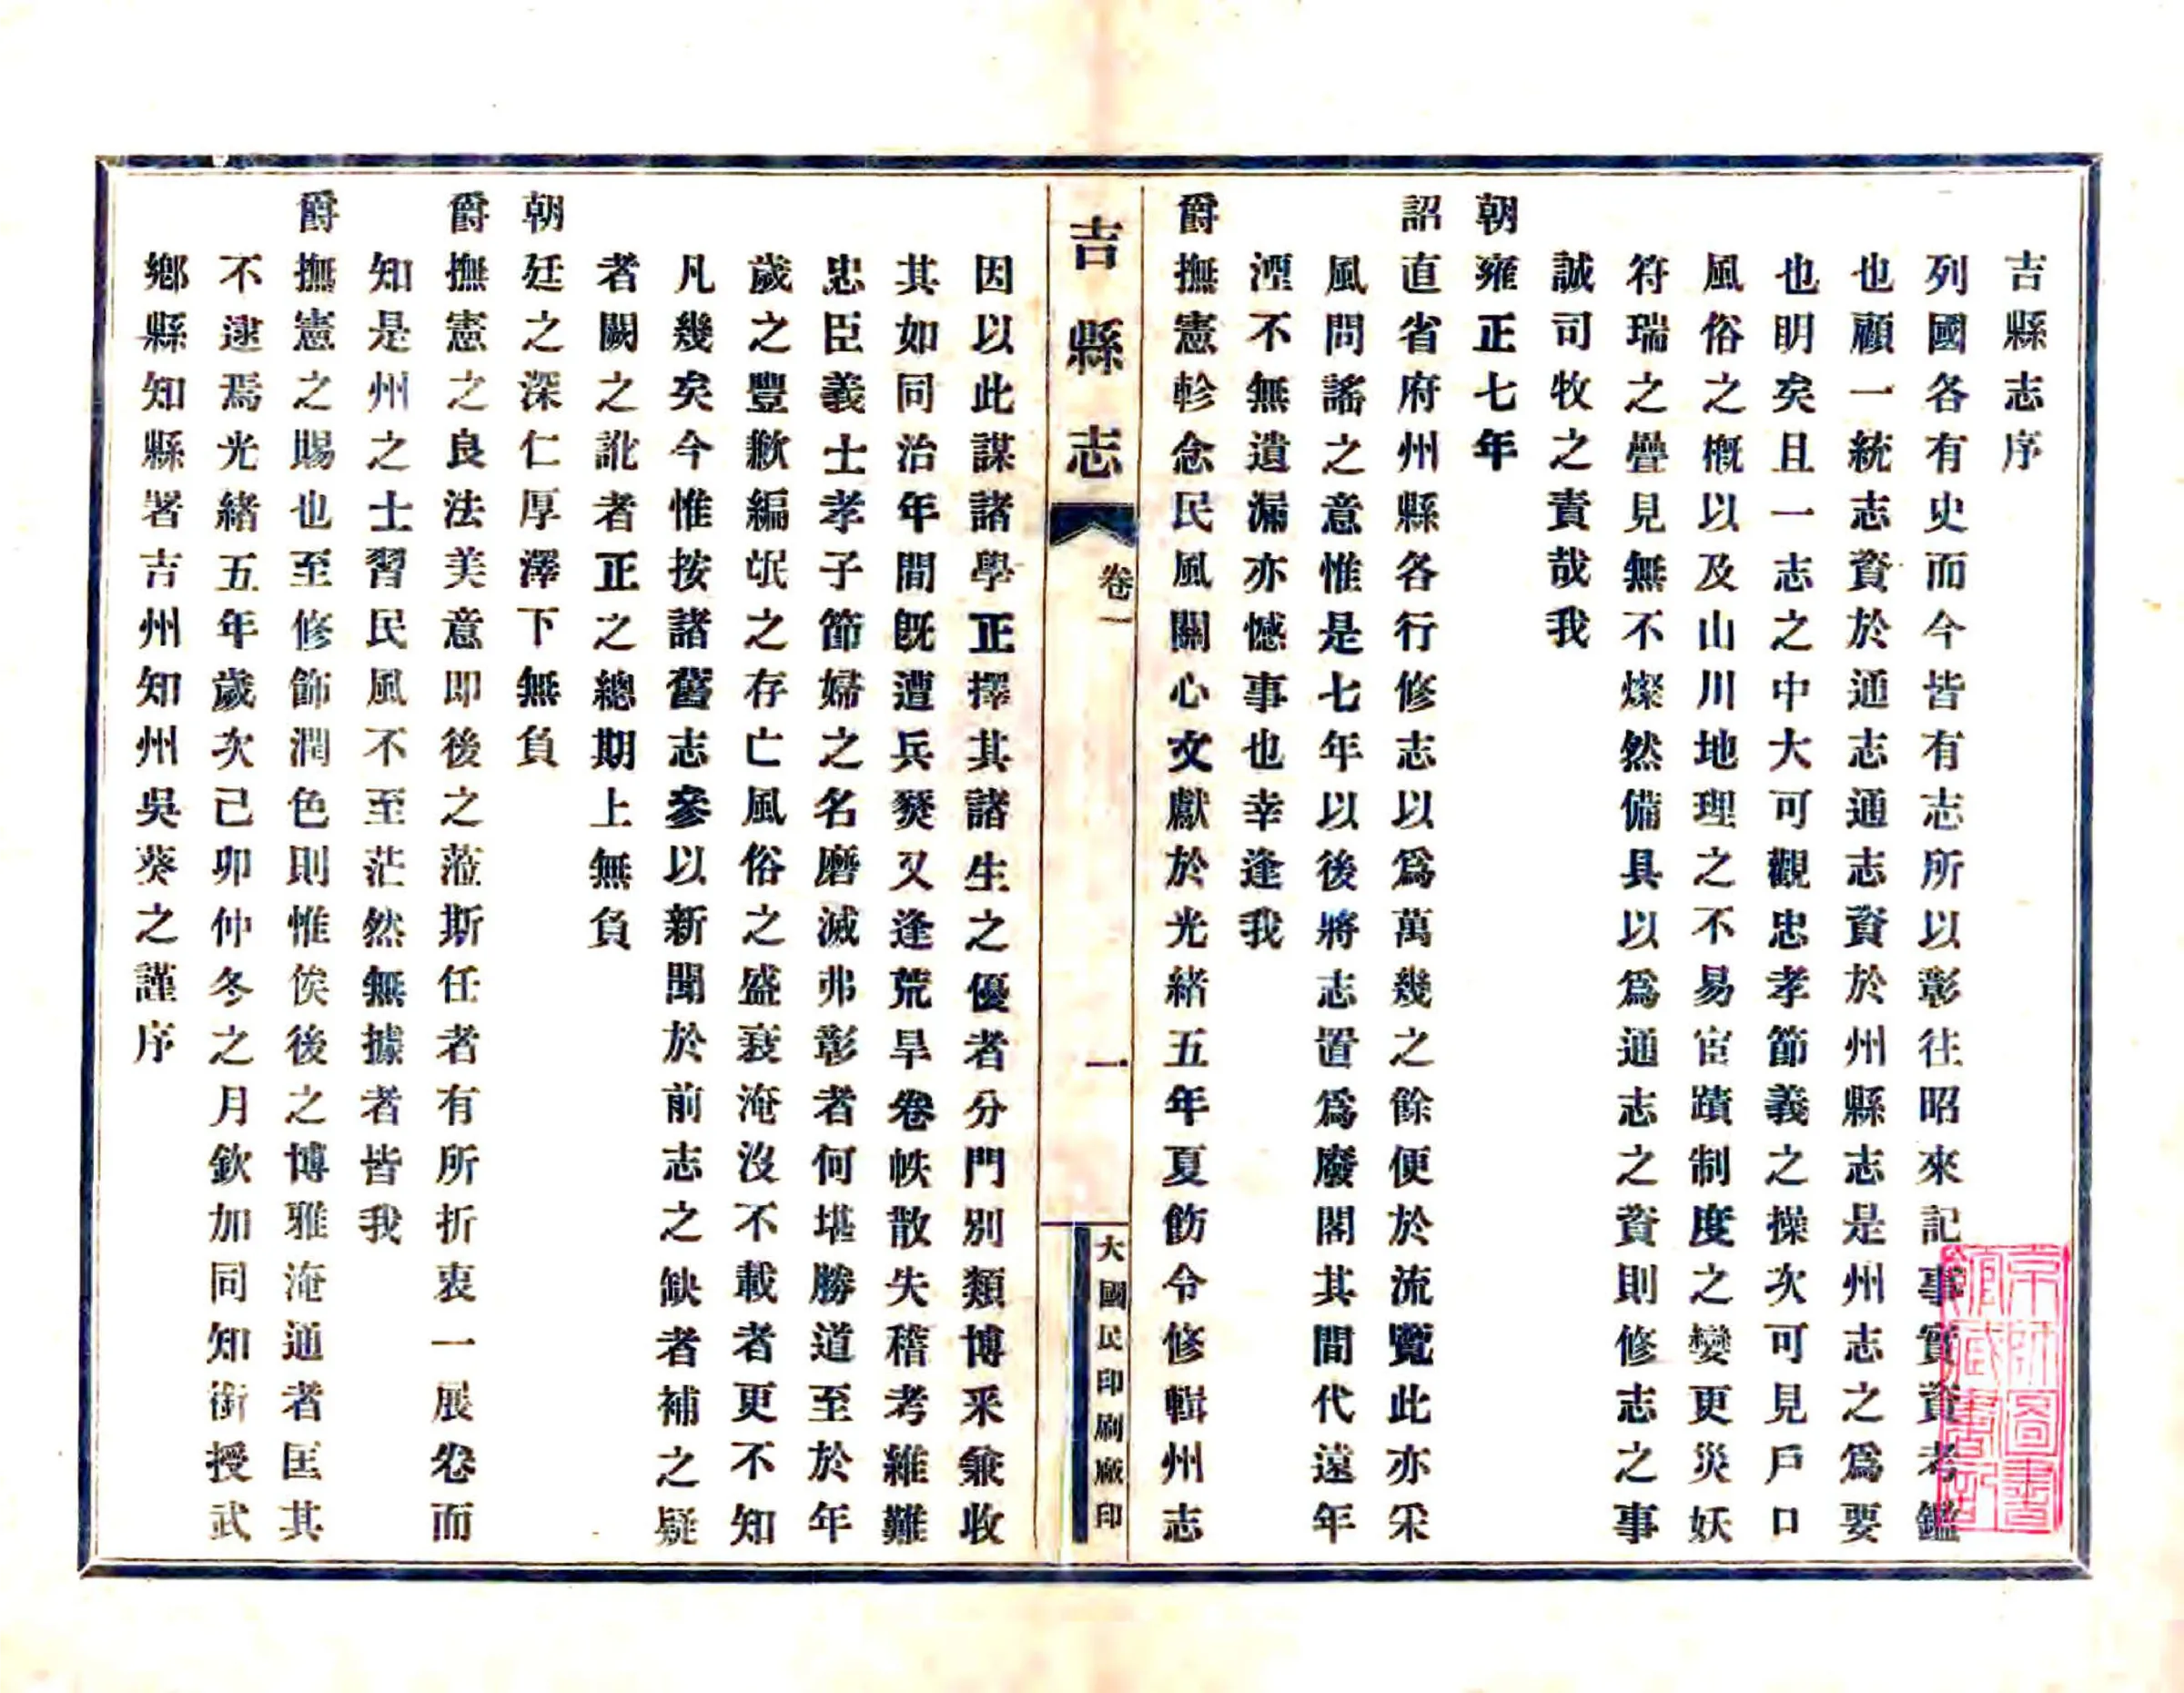 吉縣志序
列國各有史而今皆有志所以彰往昭來記事實資考鑑
也顧一統志資於通志通志資於州縣志是州志之爲要
也明矣且一志之中大可觀忠孝節義之操次可見戶口
風俗之槪以及山川地理之不易宦蹟制度之變更災妖
符瑞之疊見無不燦然備具以爲通志之資則修志之事
誠司牧之責哉我
朝雍正七年
詔直省府州縣各行修志以爲萬幾之餘便於流覽此亦采
風問謠之意惟是七年以後將志置爲廢閣其間代遠年
湮不無遺漏亦憾事也幸逢我
爵撫憲軫念民風關心文獻於光緒五年夏飭令修輯州志
吉縣志
卷一
一
大國民印刷廠印
因以此謀諸學正擇其諸生之優者分門別類博釆兼收
其如同治年間旣遭兵燹又逢荒旱卷帙散失稽考維難
忠臣義士孝子節婦之名磨滅弗彰者何堪勝道至於年
歲之豐歉編氓之存亡風俗之盛衰淹沒不載者更不知
凡幾矣今惟按諸舊志參以新聞於前志之缺者補之疑
者闕之訛者正之總期上無負
朝廷之深仁厚澤下無負
爵撫憲之良法美意即後之蒞斯任者有所折衷一展卷而
知是州之士習民風不至茫然無據者皆我
爵撫憲之賜也至修飾潤色則惟俟後之博雅淹通者匡其
不逮焉光緒五年歲次己卯仲冬之月欽加同知銜授武
鄉縣知縣署吉州知州吳葵之謹序
京師圖書
館藏書記